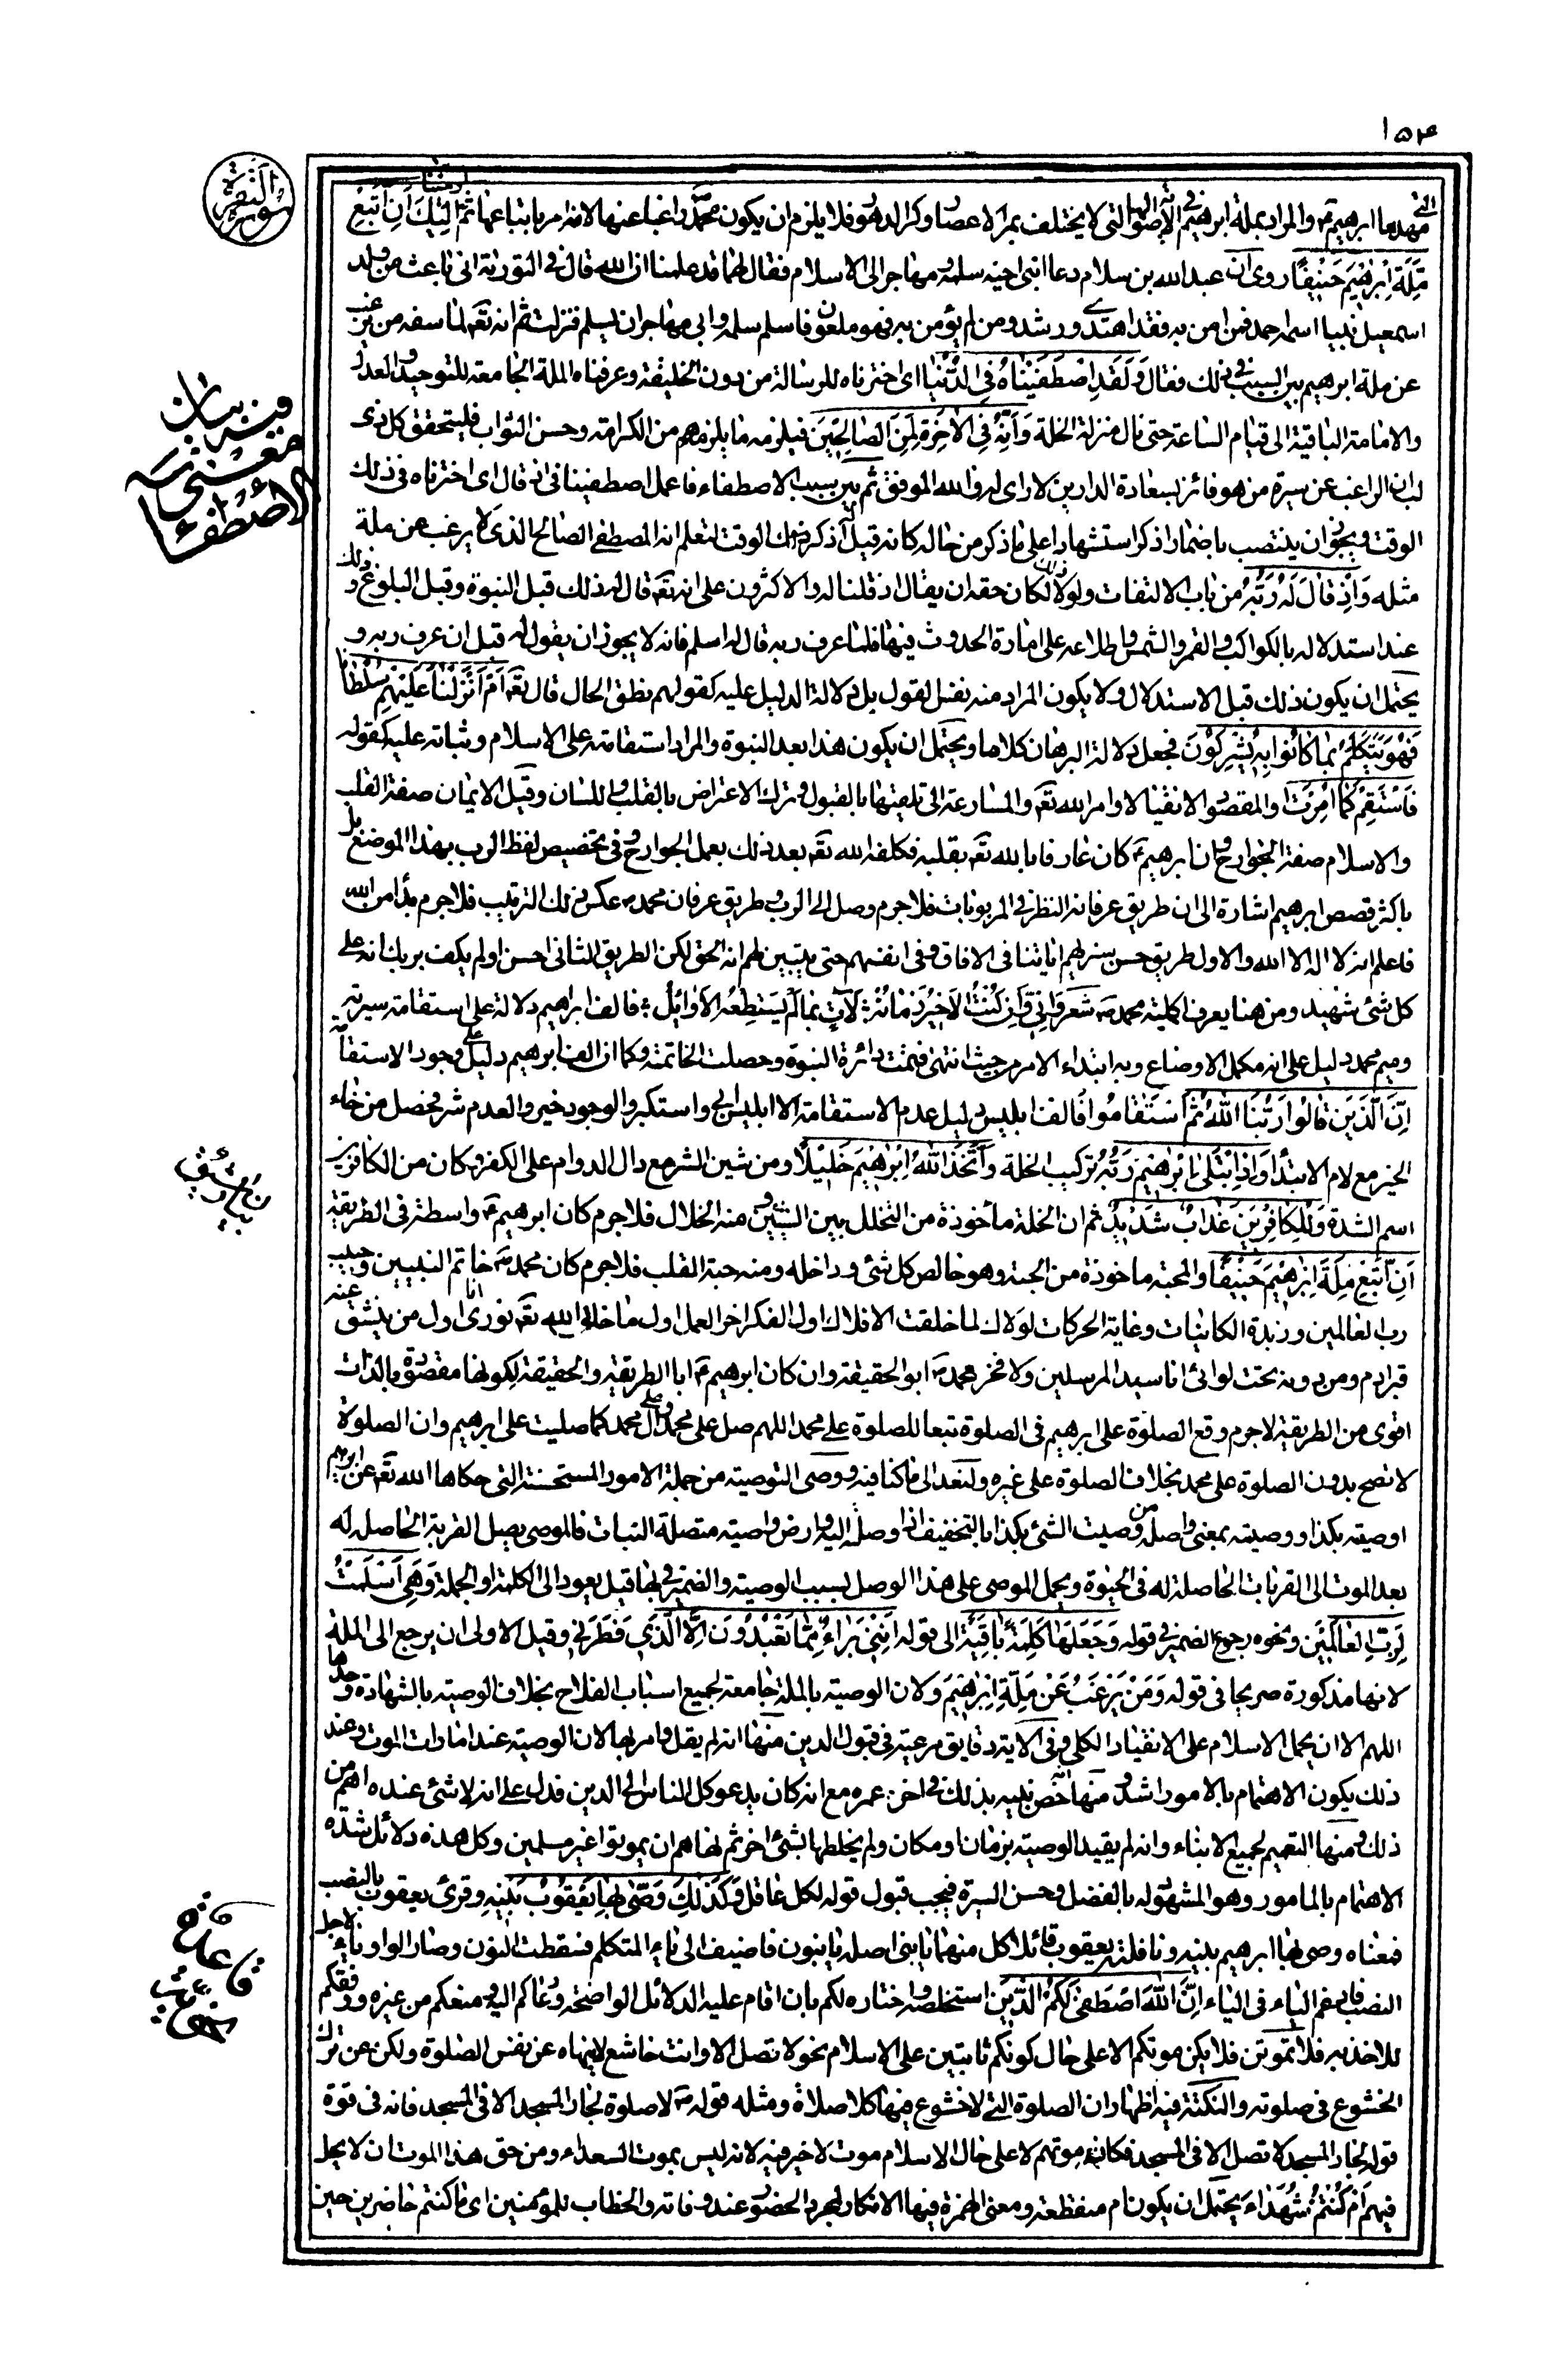 ١٥٤
سورة البقرة
التي مهدها ابراهيم ع والمراد بملة ابراهيم في الآية الاصول التي لا يختلف بمر الاعصار وكر الدهور فلا يلزم ان يكون محمد ص راغبا عنها لانه امر باتباعها ثم اوحينا اليك ان اتبع
ملة ابرهيم حنيفا روى ان عبد الله بن سلام دعا ابنى اخيه سلمة ومهاجر الى الاسلام فقال لهما قد علمنا ان الله قال في التورية انى باعث من ولد
اسمعيل نبيا اسمه احمد فمن امن به فقد اهتدى ورشد ومن لم يؤمن به فهو ملعون فاسلم سلمة وابى مهاجر ان يسلم فنزلت ثم انه تع لما سفه من يرغب
عن ملة ابرهيم بين السبب في ذلك فقال ولقد اصطفيناه في الدنيا اى اخترناه للرسالة من دون الخليقة وعرفناه الملة الجامعة للتوحيد والعدل
والامامة الباقية الى قيام الساعة حتى نال منزلة الخلة وانه في الاخرة لمن الصالحين فيلزمه ما يلزمهم من الكرامة وحسن الثواب فليتحقق كل ذى
لب ان الراغب عن سيرة من هو فائز بسعادة الدارين لا راى له والله الموفق ثم بين سبب الاصطفاء فاعمل اصطفينا في اذ قال اى اخترناه في ذلك
الوقت ويجوز ان ينتصب باضمار اذكر استشهادا على ما ذكر من حاله كانه قيل اذكر ذلك الوقت لتعلم انه المصطفى الصالح الذى لا يرغب عن ملة
مثله واذ قال له ربه من باب الالتفات ولولا ذلك لكان حقه ان يقال اذ قلنا له والاكثرون على انه تع قال له ذلك قبل النبوة وقبل البلوغ وذلك
عند استدلاله بالكواكب والقمر والشمس واطلاعه على امارة الحدوث فيها فلما عرف ربه قال له اسلم فانه لا يجوز ان يقول له قبل ان عرف ربه و
يحتمل ان يكون ذلك قبل الاستدلال ولا يكون المراد منه نفس القول بل دلالة الدليل عليه كقولهم نطق الحال قال تع ام انزلنا عليهم سلطانا
فهو يتكلم بما كانوا به يشركون فجعل دلالة البرهان كلاما ويحتمل ان يكون هذا بعد النبوة والمراد استقامته على الاسلام وثباته عليه كقوله
فاستقم كما امرت والمقصود الانقياد لاوامر الله تع والمسارعة الى تلقيها بالقبول وترك الاعتراض بالقلب واللسان وقيل الايمان صفة القلب
والاسلام صفة الجوارح وان ابرهيم ع كان عارفا بالله تع بقلبه فكلفه الله تع بعد ذلك بعمل الجوارح وفي تخصيص لفظ الرب بهذا الموضع بل
باكثر قصص ابرهيم اشارة الى ان طريق عرفانه النظر في المربوبات فلا جرم وصل الى الرب وطريق عرفان محمد ص عكس ذلك الترتيب فلا جرم بدأ من الله
فاعلم انه لا اله الا الله والاول طريق حسن سنريهم اياتنا في الافاق وفي انفسهم حتى يتبين لهم انه الحق لكن الطريق الثانى احسن اولم يكف بربك انه على
كل شئ شهيد ومن هنا يعرف اكملية محمد ص شعر وانى وان كنت الاخير زمانه : لآت بما لم يستطعه الاوائل : فالف ابراهيم دلالة على استقامة سيرته
وميم محمد دليل على انه مكمل الاوضاع وبه ابتداء الامر من حيث انتهى فتمت دائرة النبوة وحصلت الخاتمة وكما ان الف ابرهيم دليل على وجود الاستقامة
ان الذين قالوا ربنا الله ثم استقاموا فالف ابليس دليل عدم الاستقامة الا ابليس ابى واستكبر والوجود خير والعدم شر فحصل من خاء
الخير مع لام الابتداء واذ ابتلى ابرهيم ربه تركيب الخلة واتخذ الله ابرهيم خليلا ومن شين الشر مع دال الدوام على الكفر وكان من الكافرين
اسم الشدة وللكافرين عذاب شديد ثم ان الخلة مأخوذة من التخلل بين الشيئين ومنه الخلال فلا جرم كان ابرهيم ع واسطة في الطريقة
ان اتبع ملة ابرهيم حنيفا والمحبة ماخوذة من الحبة وهو خالص كل شئ وداخله ومنه حبة القلب فلا جرم كان محمد ص خاتم النبيين وحبيب
رب العالمين وزبدة الكائنات وغاية الحركات لولاك لما خلقت الافلاك اول الفكر اخر العمل اول ما خلق الله تع نورى انا اول من ينشق عنه
قبر ادم ومن دونه تحت لوائى انا سيد المرسلين ولا فخر فمحمد ص ابو الحقيقة وان كان ابرهيم ع ابا الطريقة والحقيقة لكونها مقصودة بالذات
اقوى من الطريقة لا جرم وقع الصلوة على ابرهيم في الصلوة تبعا للصلوة على محمد اللهم صل على محمد وعلى ال محمد كما صليت على ابرهيم وان الصلوة
لا تصح بدون الصلوة على محمد بخلاف الصلوة على غيره ولنعد الى ما كنا فيه ووصى التوصية من جملة الامور المستحسنة التى حكاها الله تع عن ابرهيم
اوصيته بكذا ووصيته بمعنى واصله من وصيت الشئ بكذا بالتخفيف اذا وصلته اليه وارض واصية متصلة النبات فالموصى يصل القربة الحاصلة له
بعد الموت الى القربات الحاصلة له في الحيوة ويحمل الموصى على هذا الوصل بسبب الوصية والضمير في بها قيل يعود الى الكلمة او الجملة وهى اسلمت
لرب العالمين ونحوه رجوع الضمير في قوله وجعلها كلمة باقية الى قوله اننى براء مما تعبدون الا الذى فطرنى وقيل الاولى ان يرجع الى الملة
لانها مذكورة صريحا في قوله ومن يرغب عن ملة ابرهيم ولان الوصية بالملة جامعة لجميع اسباب الفلاح بخلاف الوصية بالشهادة وحدها
اللهم الا ان يحمل الاسلام على الانقياد الكلى وفي الاية دقايق مرعية في قبول الدين منها انه لم يقل وامر بها لان الوصية عند امارات الموت وعند
ذلك يكون الاهتمام بالامور اشد ومنها انه خص بنيه بذلك في اخر عمره مع انه كان يدعو كل الناس الى الدين فدل على انه لا شئ عنده اهم من
ذلك ومنها التعميم لجميع الابناء وانه لم يقيد الوصية بزمان او مكان ولم يخلطها بشئ اخر ثم نهاهم ان يموتوا غير مسلمين وكل هذه دلائل شدة
الاهتمام بالمامور وهو المشهود له بالفضل وحسن السيرة فيجب قبول قوله لكل عاقل وكذلك وصى بها يعقوب بنيه وقرئ يعقوب بالنصب
فمعناه وصى بها ابرهيم بنيه ونافلته يعقوب قائلا كل منهما يا بنى اصله يا بنون فاضيف الى ياء المتكلم فسقطت النون وصار الواو ياء لاجل
النصب فادغم الياء في الياء ان الله اصطفى لكم الدين استخلصه واختاره لكم بان اقام عليه الدلائل الواضحة ودعاكم اليه ومنعكم من غيره ووفقكم
للاخذ به فلا تموتن فلا يكن موتكم الا على حال كونكم ثابتين على الاسلام نحو لا تصل الا وانت خاشع لا ينهاه عن نفس الصلوة ولكن عن ترك
الخشوع في صلوته والنكتة فيه اظهار ان الصلوة التى لا خشوع فيها كلا صلاة ومثله قوله ص لا صلوة لجار المسجد الا في المسجد فانه في قوة
قوله لجار المسجد لا تصل الا في المسجد فكان موتهم لا على حال الاسلام موت لا خير فيه لانه ليس بموت السعداء ومن حق هذا الموت ان لا يحل
فيهم ام كنتم شهداء يحتمل ان يكون ام منقطعة ومعنى الهمزة فيها الانكار لمجرد الحضور عند وفاته والخطاب للمؤمنين اى ما كنتم حاضرين حين
فيه بيان
معنى
الاصطفاء